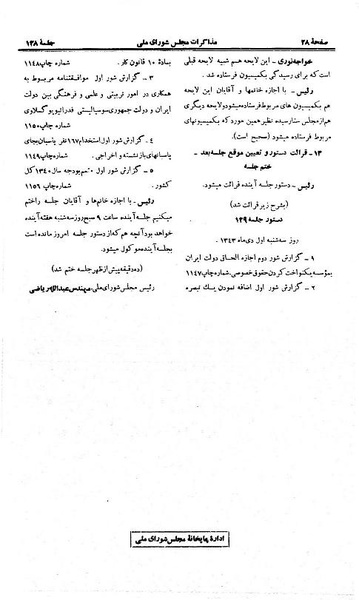 صفحهٔ ۲۸
مذاکرات مجلس شورای ملی
جلسهٔ ۱۳۸
خواجه‌نوری - این لایحه هم شبیه لایحه قبلی
است که برای رسیدگی بکمیسیون فرستاده شد.
رئیس - با اجازه خانمها و آقایان این لایحه
بکمیسیون های مربوط فرستاده میشود و لایحه دیگری
هم از مجلس سنا رسیده نظیر همین مورد که بکمیسیونهای
مربوط فرستاده میشود (صحیح است).
۱۳ - قرائت دستور و تعیین موقع جلسه بعد -
ختم جلسه
رئیس - دستور جلسه آینده قرائت میشود.
(بشرح زیر قرائت شد)
دستور جلسه ۱۳۹
روز سه‌شنبه اول دی‌ماه ۱۳۴۳
۱ - گزارش شور دوم اجازه الحاق دولت ایران
بمؤسسه یکنواخت کردن حقوق خصوصی. شماره چاپ ۱۱۴۷
۲ - گزارش شور اول اضافه نمودن یک تبصره
بمادهٔ ۱۰ قانون کار. شماره چاپ ۱۱۴۸
۳ - گزارش شور اول موافقتنامه مربوط به
همکاری در امور تربیتی و علمی و فرهنگی بین دولت
ایران و دولت جمهوری سوسیالیستی فدراتیو یوگسلاوی
شماره چاپ ۱۱۵۰
۴ - گزارش شور اول استخدام ۱۶۷ نفر پاسبان بجای
پاسبانهای بازنشسته و اخراجی. شماره چاپ ۱۱۴۹
۵ - گزارش شور اول متمم بودجه سال ۱۳۴۰ کل
کشور. شماره چاپ ۱۱۵۶
رئیس - با اجازه خانم‌ها و آقایان جلسه را ختم
میکنیم جلسه آینده ساعت ۹ صبح روز سه‌شنبه هفته آینده
خواهد بود آنچه هم که از دستور جلسه امروز مانده است
بجلسه آینده موکول میشود.
(ده دقیقه پیش از ظهر جلسه ختم شد)
رئیس مجلس شورای ملی. مهندس عبدالله ریاضی
اداره چاپخانهٔ مجلس شورای ملی